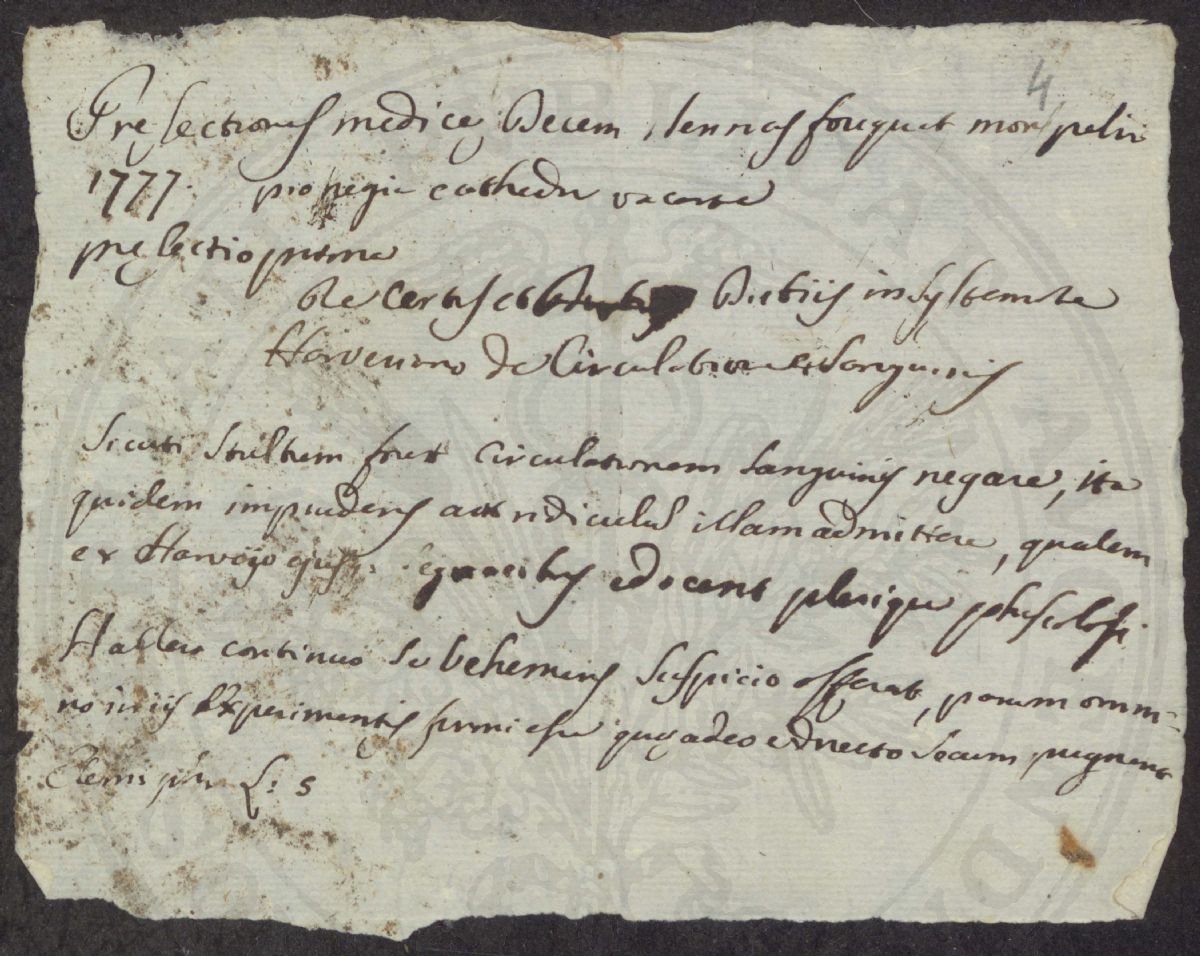 4
Pręlectiones medicę Decem Henrici fouquet monspelii
1777. pro regia cathedra vacante
pręlectio prima
De certis et Dubiis in Systemate
Harveiano de Circulatione Sanguinis
Sicuti Stultum foret Circulationem Sanguinis negare, ita
quidem imprudens aut ridiculum illam admittere, qualem
ex Harvęjo ejusq; sequacibus edocent plerique physiologi
Hallero continuo vehemens Suspicio offerat, parum omni-
no in iis Experimentis firmi esse quę adeo e directo Secum pugnent
Elem: phys L: 5